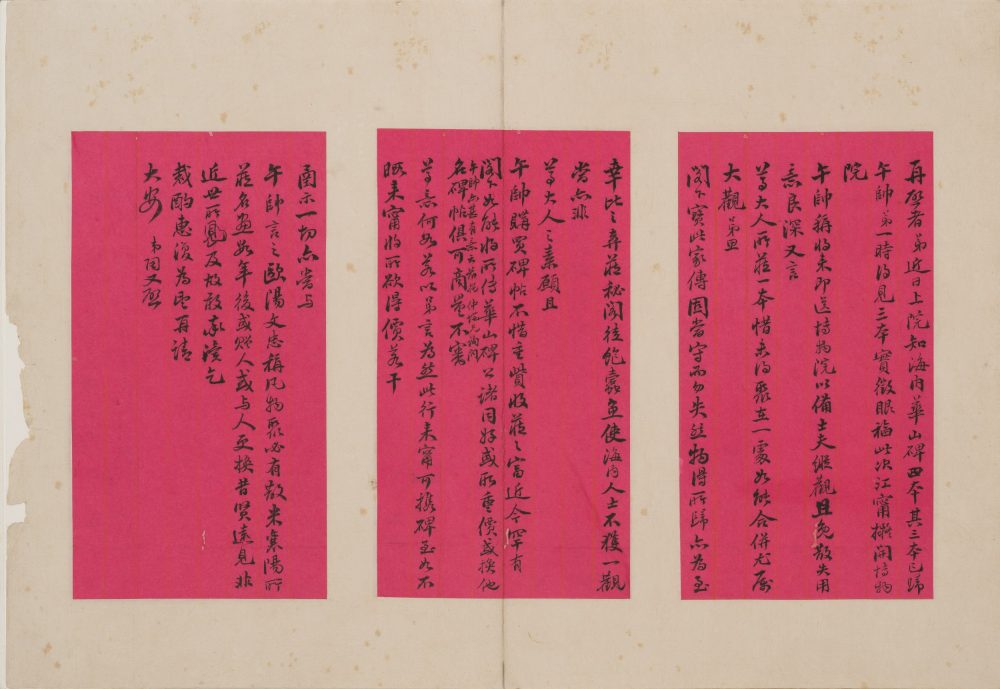 再啓者弟近日上院知海內華山碑四本其三本已歸
午帥弟一時得見三本實徵眼福此次江甯擬開博物
院
午帥稱將來即送博物院以備士夫縱觀且免散失用
意良深又言
尊大人所藏一本惜未得聚在一處如能合併尤屬
大觀弟思
閣下寶此家傳固當守而勿失然物得所歸亦為至
幸此之弆藏秘閣徒飽蠹魚使海內人士不獲一觀
當亦非
尊大人之素願且
午帥購買碑帖不惜重貲收藏之富近今罕有
閣下如能將所傳華山碑公諸同好或取重價或換他
午帥
名碑帖俱可商量不審
尊意何如若以弟言為然此行來甯可攜碑至如不
暇來甯將所欲得價若干
函示一切亦當与
午帥言之歐陽文忠稱凡物聚必有散米襄陽所
藏名畫數年後或贈人或与人更換昔賢遠見非
近世所及敢敢奉瀆乞
裁酌惠復為盼再請
大安 弟 又啓